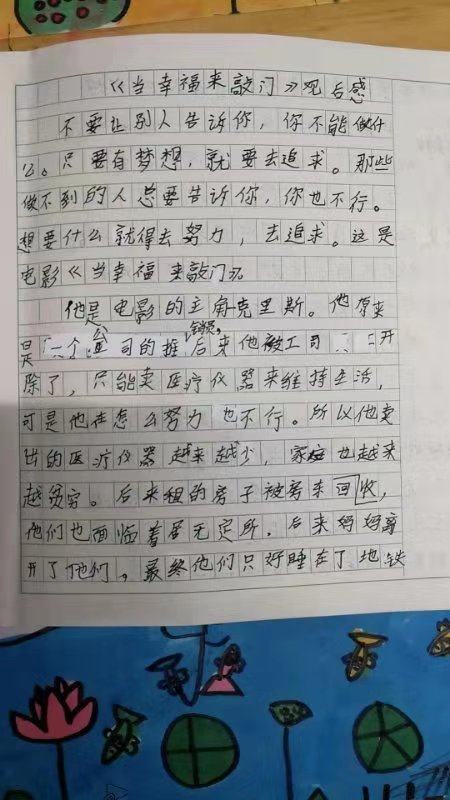 《当幸福来敲门》观后感
不要让别人告诉你，你不能做什
么。只要有梦想，就要去追求。那些
做不到的人总要告诉你，你也不行。
想要什么就得去努力，去追求。这是
电影《当幸福来敲门》
他是电影的主角克里斯。他原来
是一个公司的推销员，后来他被公司开
除了，只能卖医疗仪器来维持生活，
可是他在怎么努力也不行。所以他卖
出的医疗仪器越来越少，家庭也越来
越贫穷。后来租的房子被房东回收，
他们也面临着居无定所，后来妈妈离
开了他们，最终他们只好睡在了地铁